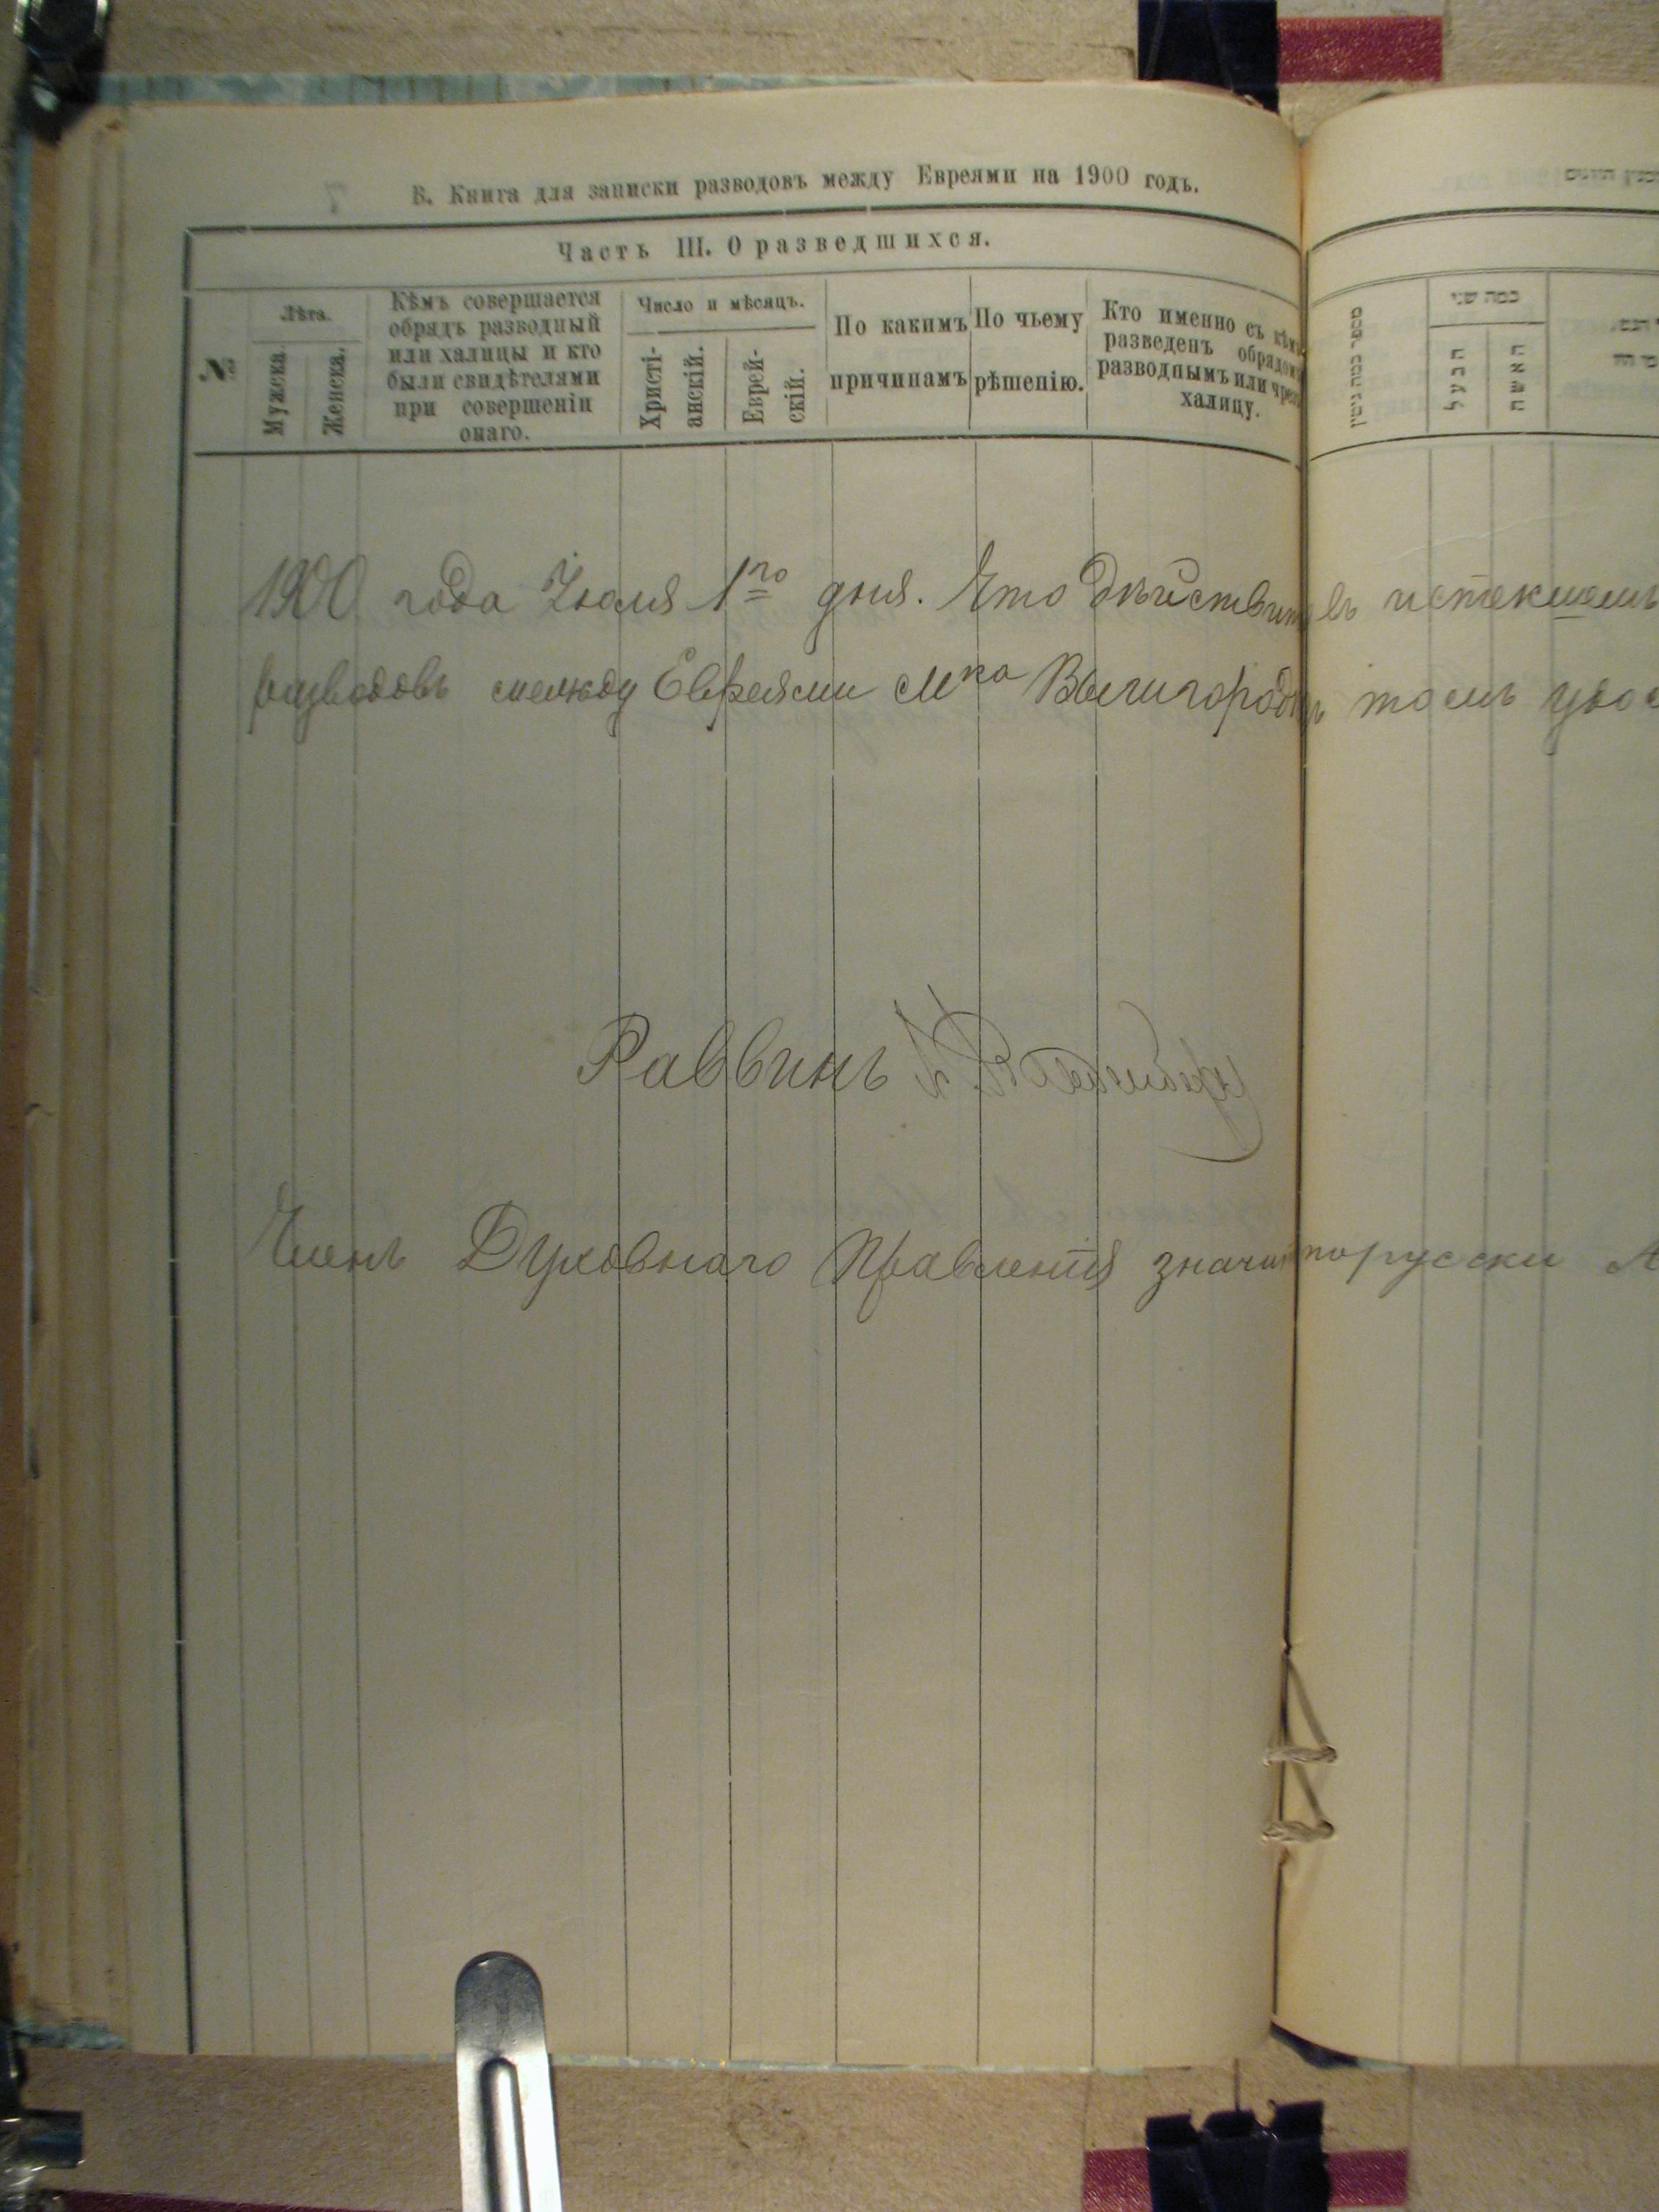 В. Книга для записки разводовъ между Евреями на 1900 годъ.
Часть III. О разведшихся.
№
Лѣта.
Мужска.
Женска.
Кѣмъ совершается
обрядъ разводный
или халицы и кто
были свидѣтелями
при совершеніи
онаго.
Число и мѣсяцъ.
Христі-
анскій.
Еврей-
скій.
По какимъ
причинамъ
По чьему
рѣшенію.
Кто именно съ кѣмъ
разведенъ обрядомъ
разводнымъ или чрезъ
халицу.
כמה שני
הבעל
האשה
1900 года Іюля 1го дня. Что дѣйствит въ истекшемъ
разводовъ между Евреями мка Вышгород томъ удос
Раввинъ
Членъ Духовнаго Правленія значит порусски